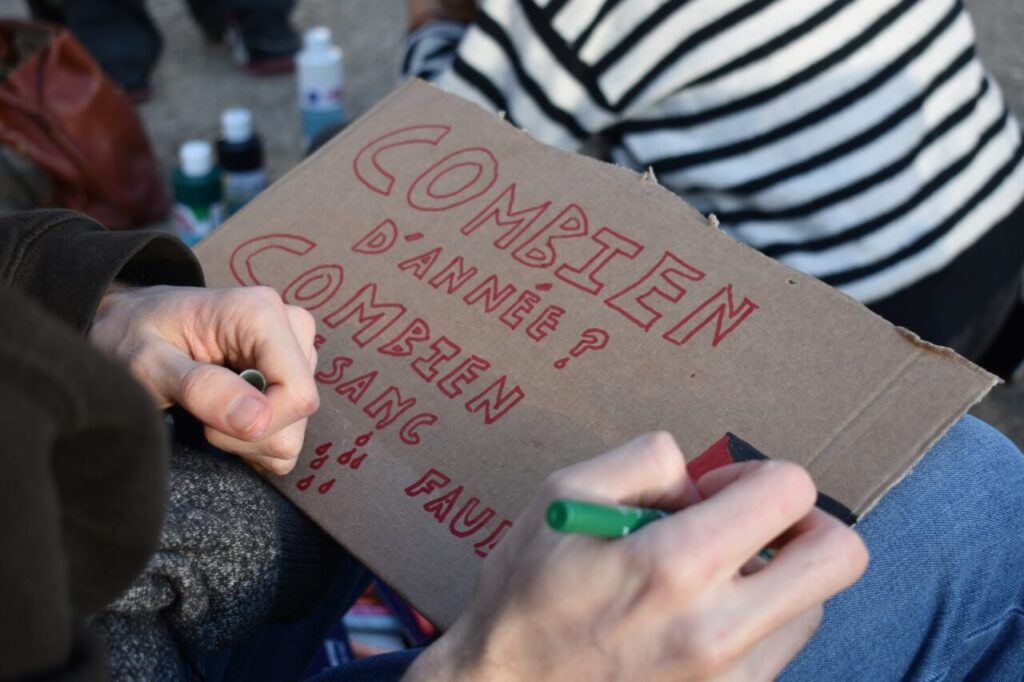 COMBIEN
D'ANNÉE?
COMBIEN
SANG